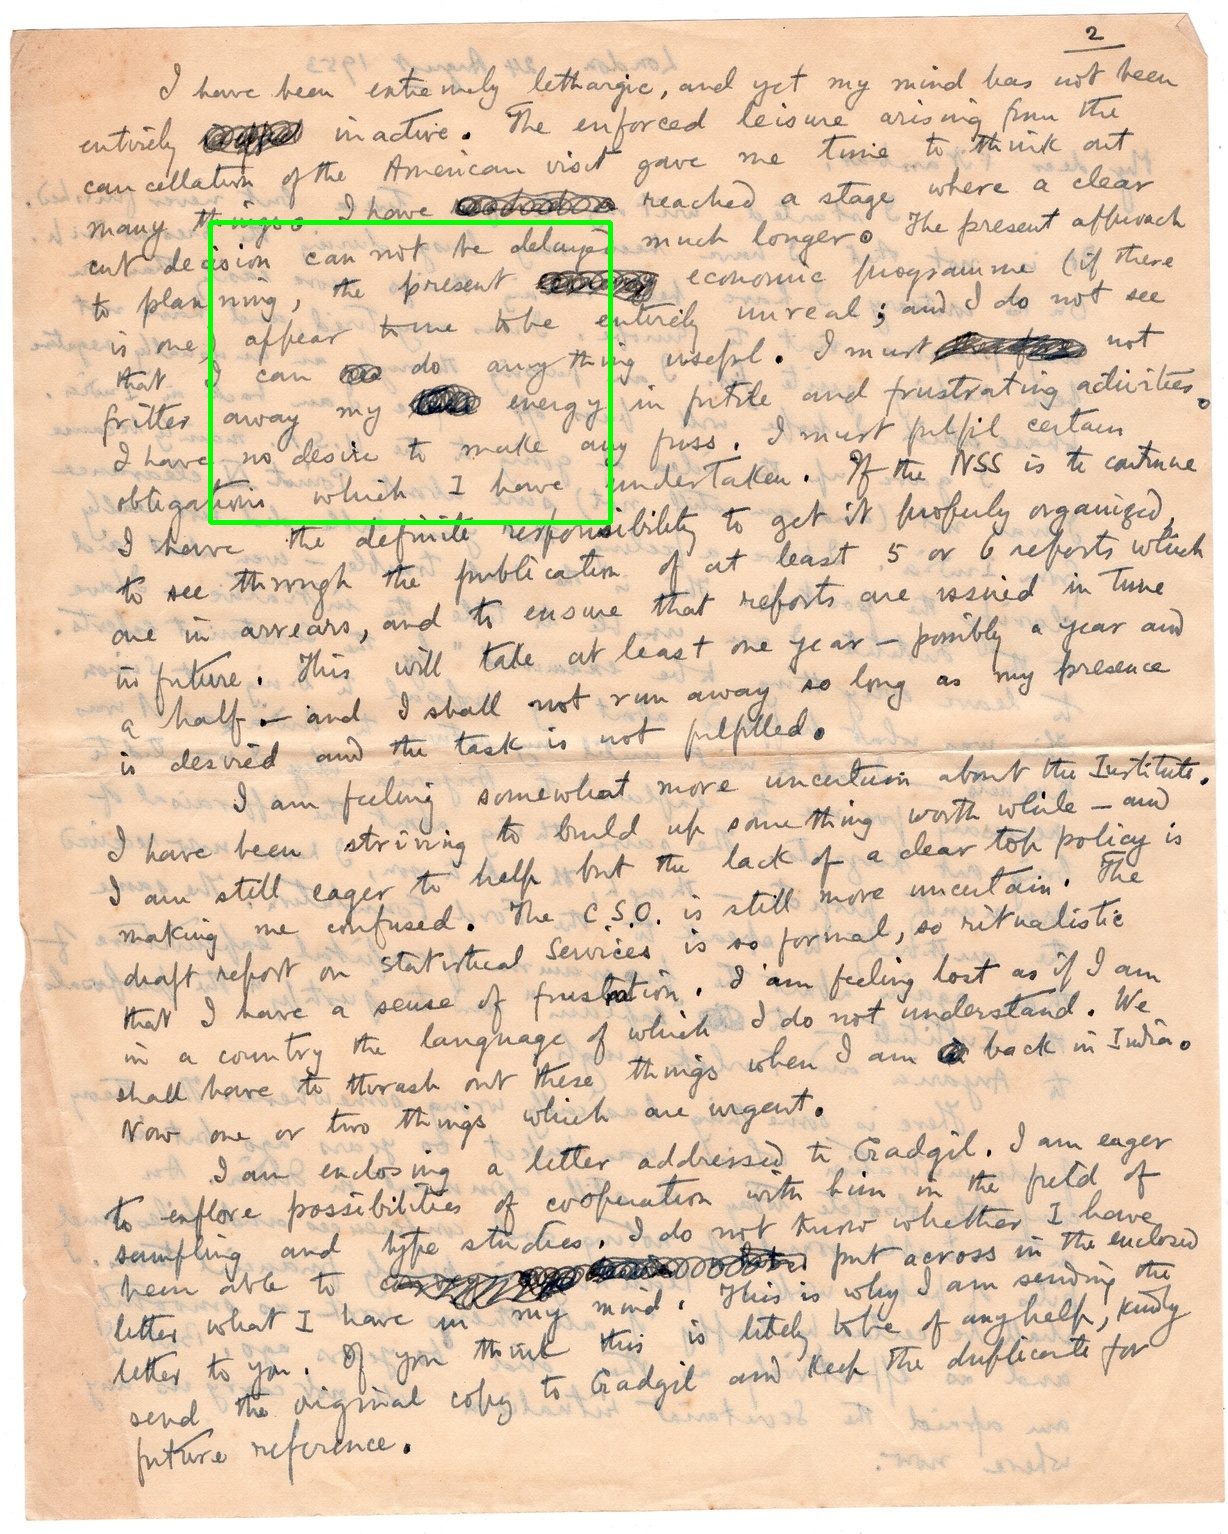 2
I have been extremely lethargic, and yet my mind has not been
entirely inactive. The enforced leisure arising from the
cancellation of the American visit gave me time to think out
many things. I have reached a stage where a clear
cut decision can not be delayed much longer. The present approach
to planning, the present economic programme (if there
is one) appear to me to be entirely unreal; and I do not see
that I can do anything useful. I must not
fritter away my energy in futile and frustrating activities.
I have no desire to make any fuss. I must fulfil certain
obligations which I have undertaken. If the NSS is to continue
I have the definite responsibility to get it properly organized,
to see through the publication of at least 5 or 6 reports which
are in arrears, and to ensure that reports are issued in time
in future. This will take at least one year – possibly a year and
a half – and I shall not run away so long as my presence
is desired and the task is not fulfilled.
I am feeling somewhat more uncertain about the Institute.
I have been striving to build up something worth while – and
I am still eager to help but the lack of a clear top policy is
making me confused. The C.S.O. is still more uncertain. The
draft report on Statistical Services is so formal, so ritualistic
that I have a sense of frustration. I am feeling lost as if I am
in a country the language of which I do not understand. We
shall have to thrash out these things when I am back in India.
Now one or two things which are urgent.
I am enclosing a letter addressed to Gadgil. I am eager
to explore possibilities of cooperation with him in the field of
sampling and type studies. I do not know whether I have
been able to put across in the enclosed
letter what I have in my mind. This is why I am sending the
letter to you. If you think this is likely to be of any help, kindly
send the original copy to Gadgil and keep the duplicate for
future reference.